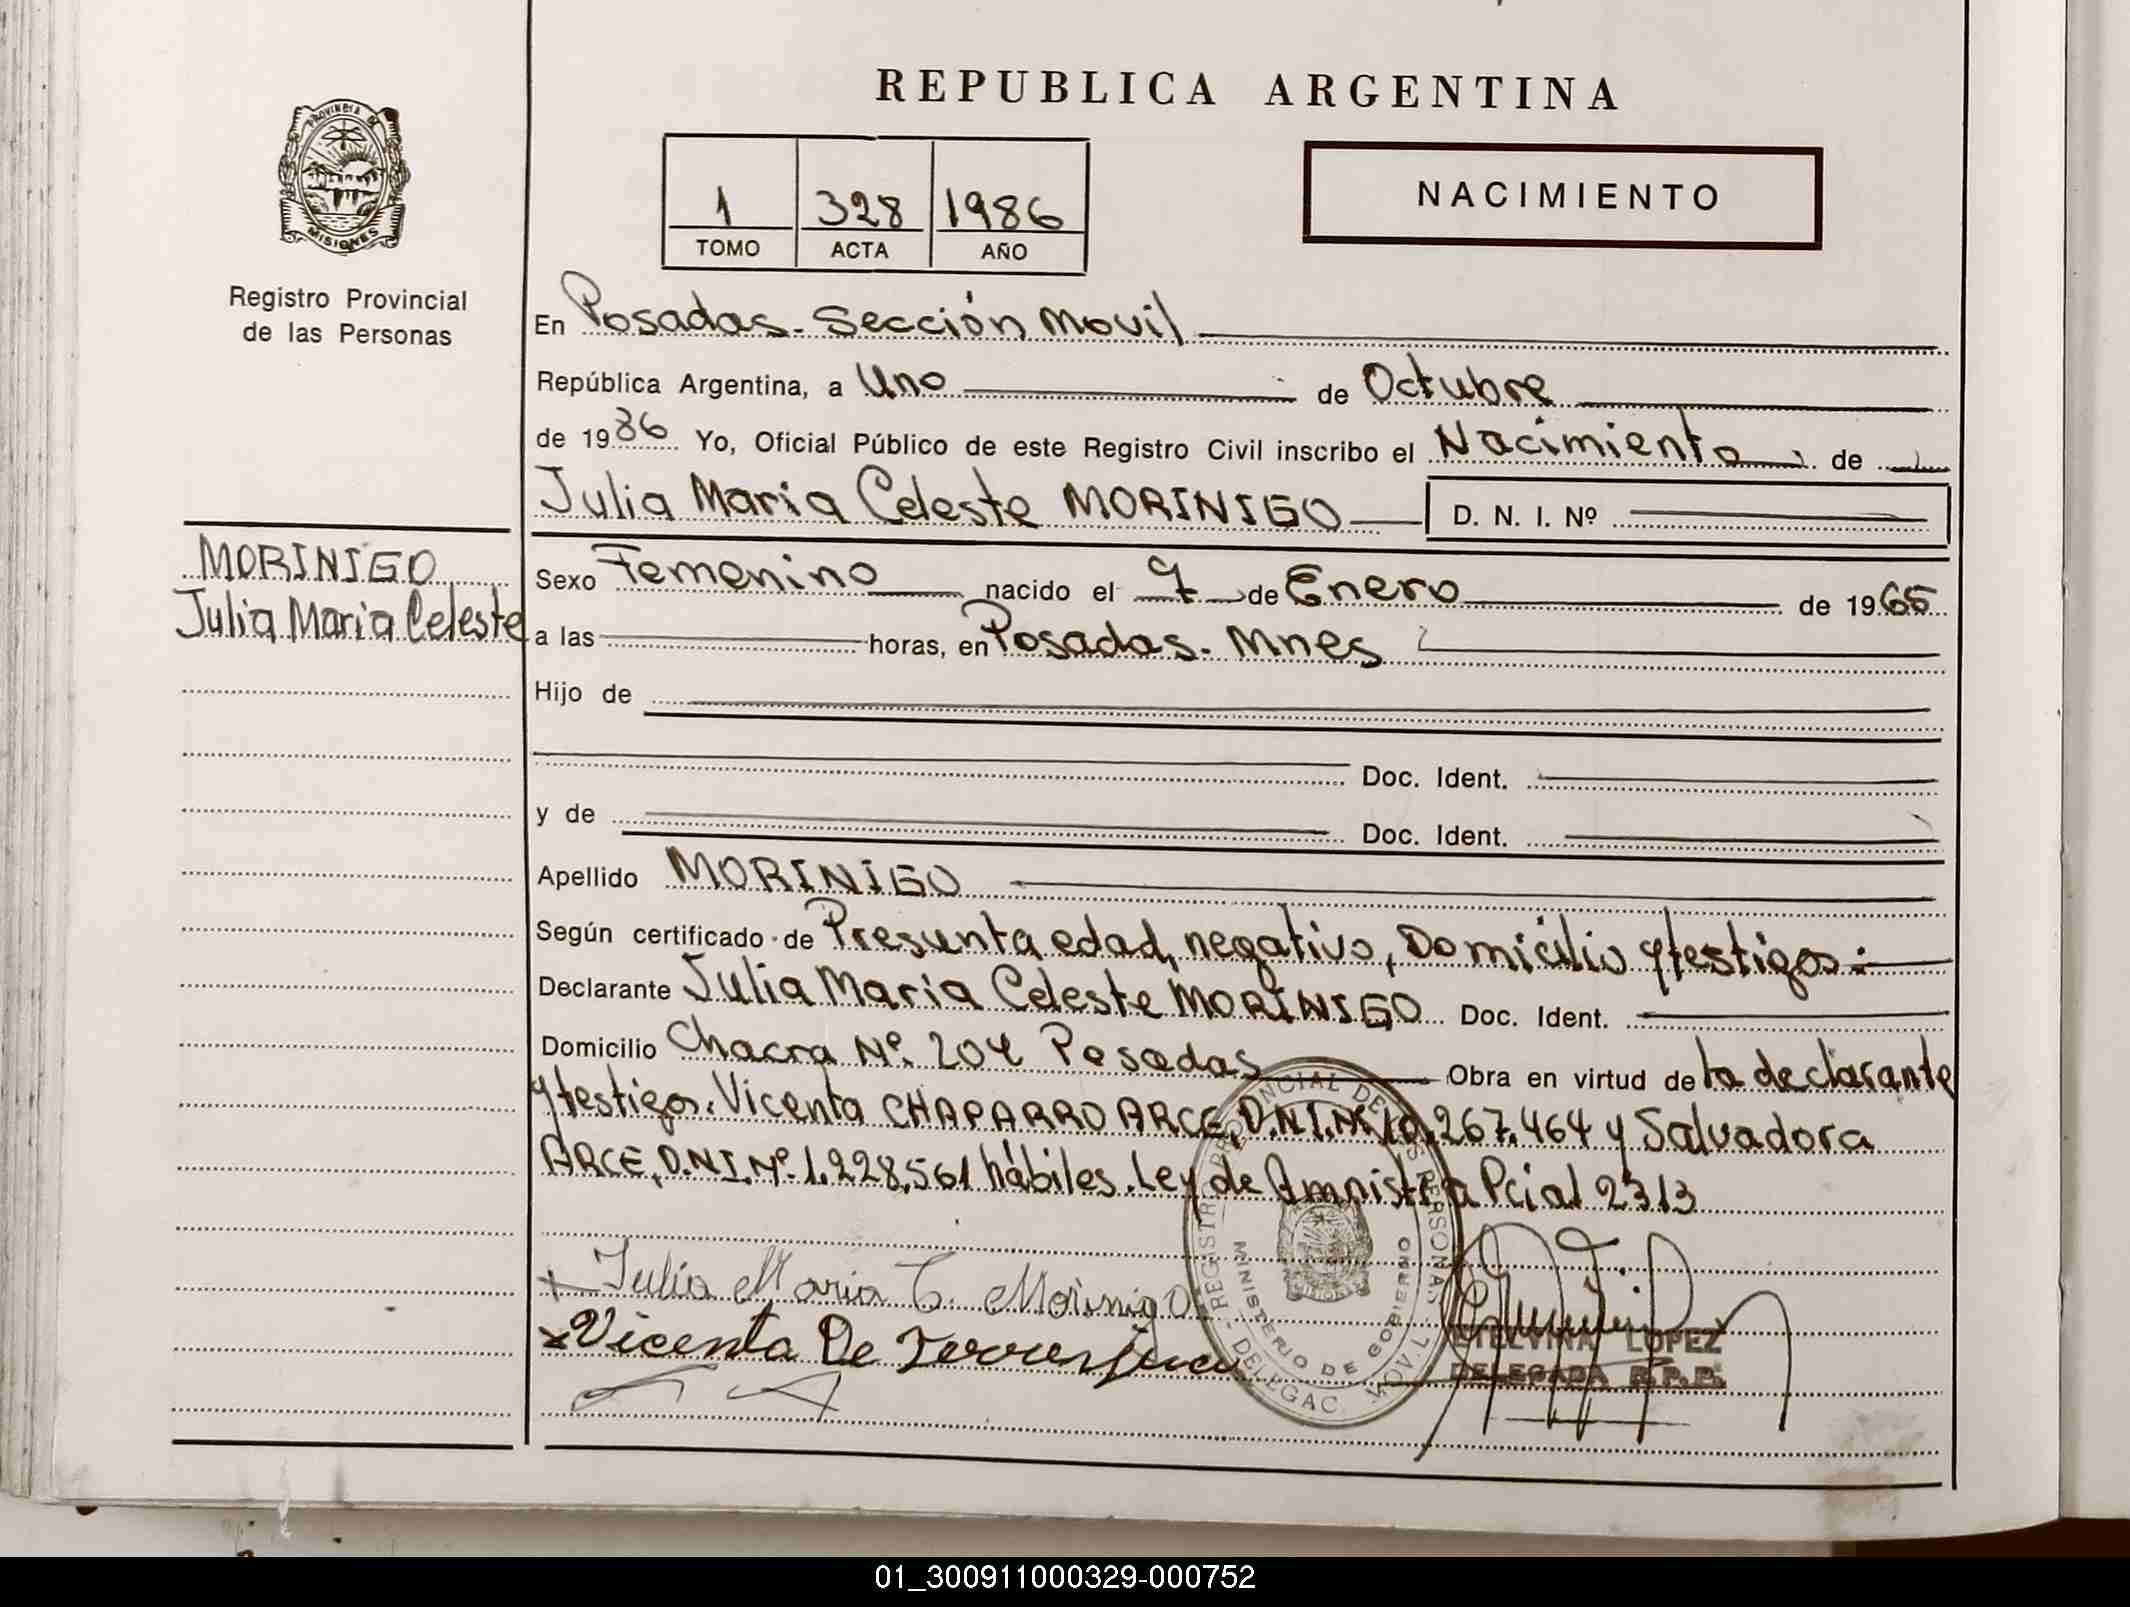 REPUBLICA ARGENTINA
PROVINCIA DE MISIONES
Registro Provincial
de las Personas
1 328 1986
TOMO ACTA AÑO
NACIMIENTO
En Posadas - Sección Movil
República Argentina, a Uno de Octubre
de 1986 Yo, Oficial Público de este Registro Civil inscribo el Nacimiento de
Julia Maria Celeste MORINIGO D. N. I. Nº
MORINIGO
Julia Maria Celeste
Sexo Femenino nacido el 9 de Enero de 1965
a las horas, en Posadas - Mnes
Hijo de
Doc. Ident.
y de Doc. Ident.
Apellido MORINIGO
Según certificado de Presunta edad, negativo, Domicilio y testigos.
Declarante Julia Maria Celeste MORINIGO Doc. Ident.
Domicilio Chacra Nº 204 Posadas Obra en virtud de la declarante
y testigos. Vicenta CHAPARRO ARCE, D.N.I. Nº 10.267.464 y Salvadora
ARCE, D.N.I. Nº 1.228.561 hábiles. Ley de Amnistia Pcial 2313
x Julia Maria C. Morinigo
x Vicenta De
REGISTRO PROVINCIAL DE LAS PERSONAS - DELEGAC. MOVIL
MINISTERIO DE GOBIERNO
ETELVINA LOPEZ
DELEGADA R.P.P.
01_300911000329-000752